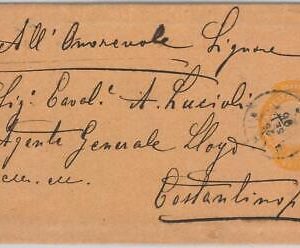 All' Onorevole Signore
Sig: Caval.e A. Lucioli
Agente Generale Lloyd
Costantinop